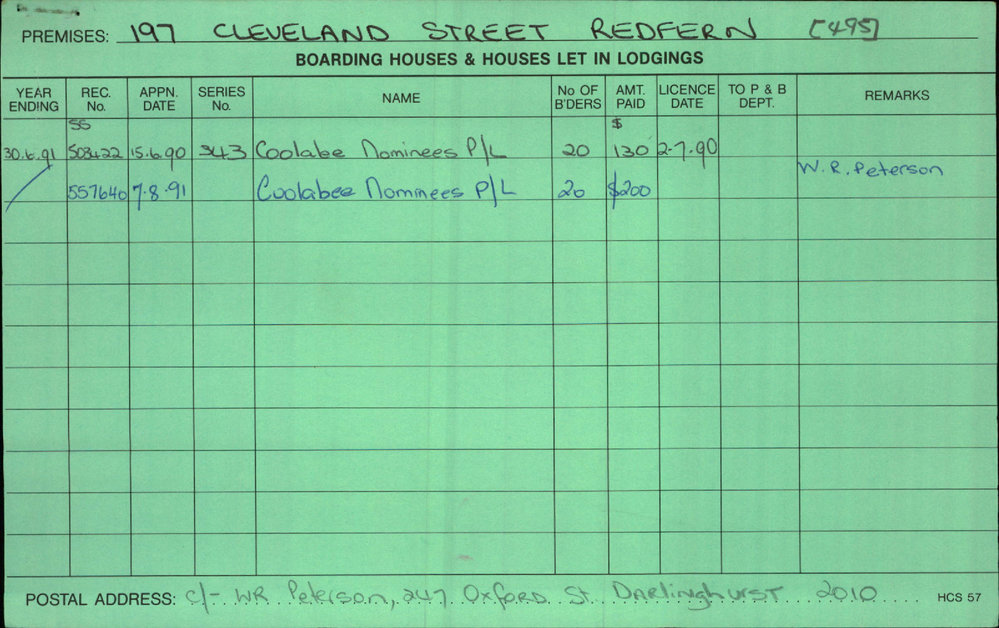 PREMISES: 197 CLEVELAND STREET REDFERN [495]
BOARDING HOUSES & HOUSES LET IN LODGINGS
YEAR ENDING REC. No. APPN. DATE SERIES No. NAME No OF B'DERS AMT. PAID LICENCE DATE TO P & B DEPT. REMARKS
SS $
30.6.91 508422 15.6.90 343 Coolabe Nominees P/L 20 130 2-7-90
557640 7-8-91 Coolabee Nominees P/L 20 $200 W.R. Peterson
POSTAL ADDRESS: c/- WR Peterson, 247 Oxford St Darlinghurst 2010 HCS 57